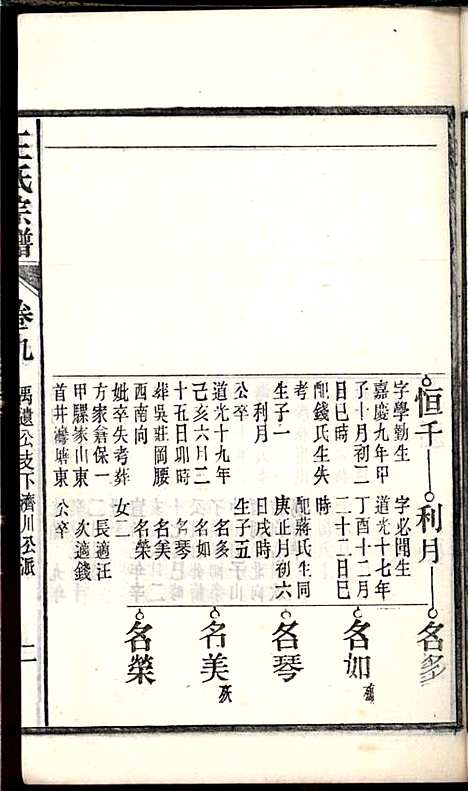 恒千
利月
名多
名如
名琴
名美
名榮
字學勤生
嘉慶九年甲
子十月初二
日巳時
配錢氏生失
考
生子一
利月
公卒
道光十九年
己亥六月三
十五日卯時
葬吳莊岡腰
西南向
妣卒失考葬
方家倉保一
甲騾家山東
首井灣塘東
字必聞生
道光十七年
丁酉十二月
二十三日巳
時
配蔣氏生同
庚正月初六
日戌時
生子五
名多
名如
名琴
名美
名榮
女二
長適汪
次適錢
公卒
王氏宗譜
卷九
禹遺公支下濟川公派
二